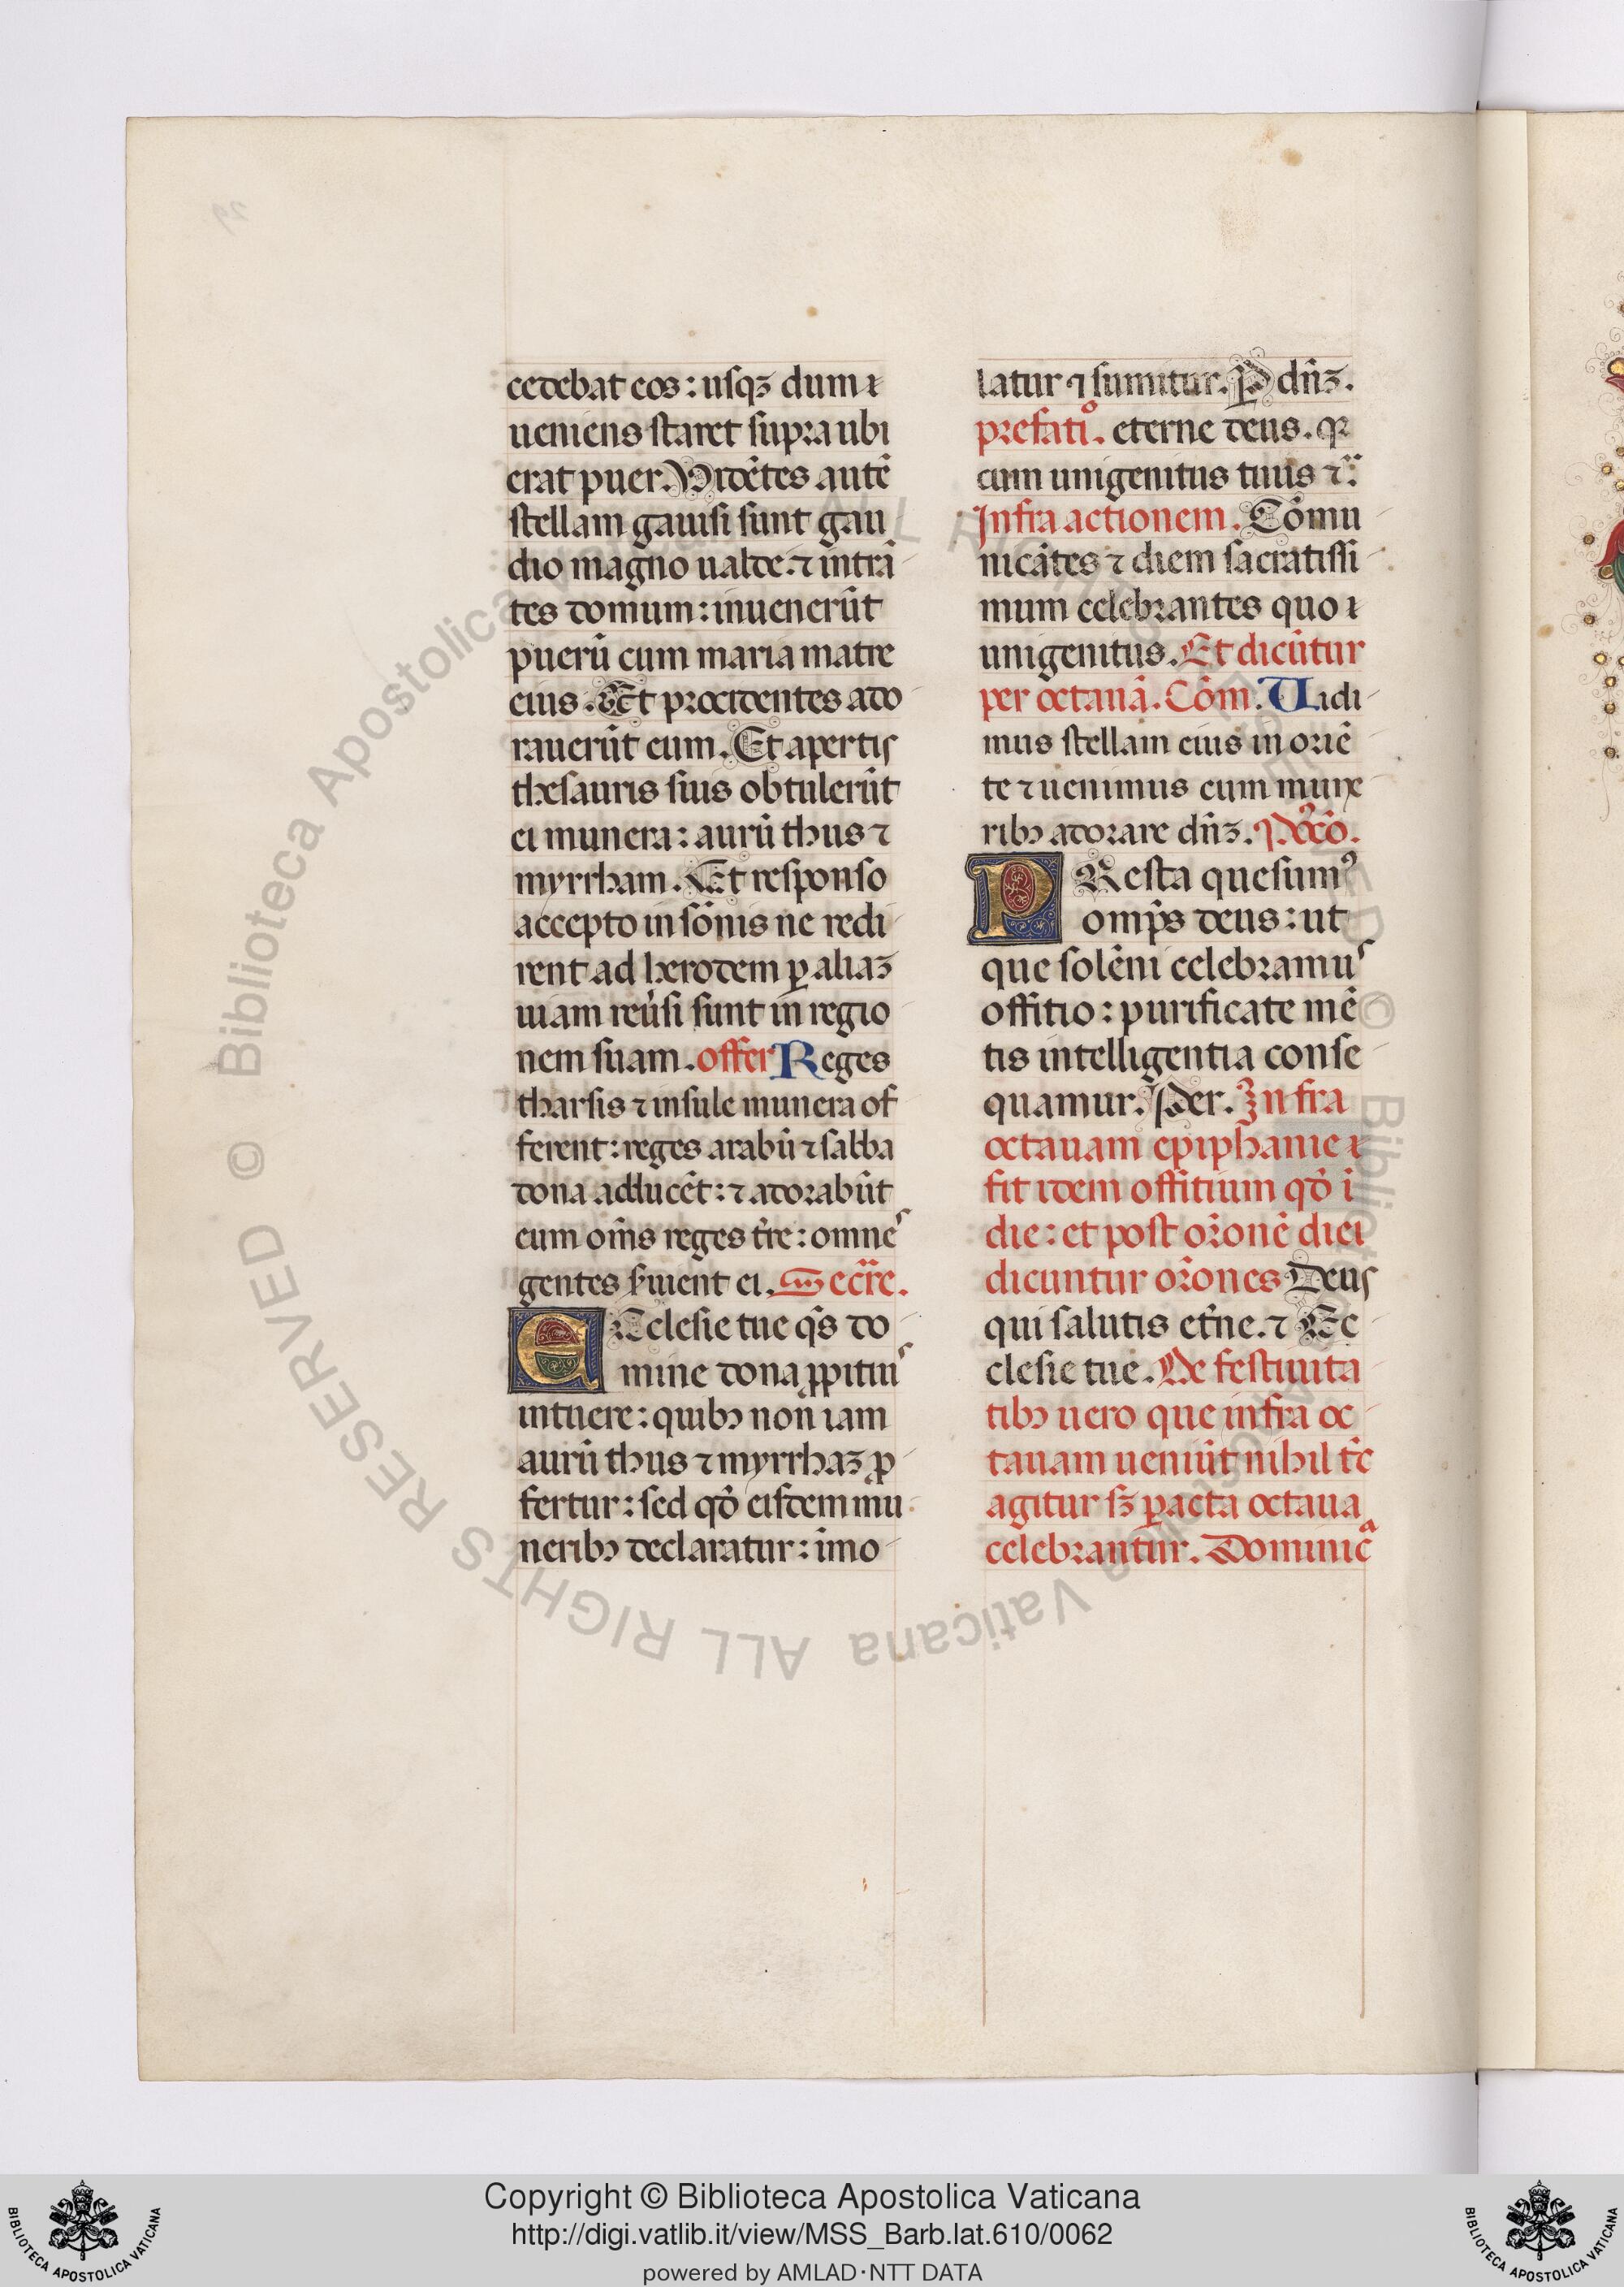 cedebat eos: usqꝫ dum
ueniens staret supra ubi
erat puer. Vidētes autē
stellam gauisi sunt gau
dio magno ualde. ⁊ intrā
tes domum: inuenerūt
puerū cum maria matre
eius. Et procidentes ado
rauerūt eum. Et apertis
thesauris suis obtulerūt
ei munera: aurū thus ⁊
myrrham. Et responso
accepto in sōnis ne redi
rent ad herodem ꝑ aliaꝫ
uiam reu̓si sunt in regio
nem suam. offer Reges
tharsis ⁊ insule munera of
ferent: reges arabū ⁊ sabba
dona adducēt: ⁊ adorabūt
eum om̄s reges tr̄e: omnes
gentes s̓uient ei. Secr̄e.
Ecclesie tue qs̄ do
mine dona ꝓpitius
intuere: quibꝫ non iam
aurū thus ⁊ myrrhaꝫ ꝓ
fertur: sed qd̄ eisdem mu
neribꝫ declaratur: imo
latur ⁊ sumitur. P dn̄ꝫ.
prefatiº. eterne deus. qꝛ
cum unigenitus tuus ⁊c̄:
Infra actionem. Cōmu
nicātes ⁊ diem sacratissi
mum celebrantes quo
unigenitus. Et dicūtur
per octauā. Cōm. Uidi
mus stellam eius in oriē
te ⁊ uenimus cum mune
ribꝫ adorare dn̄ꝫ. Pꝰcō.
PResta quesumꝰ
omp̄s deus: ut
que solēni celebramus
offitio: purificate mē
tis intelligentia conse
quamur. Per. Infra
octauam epiphanie
fit idem offitium qd̄ ī
die: et post or̄onē diei
dicuntur or̄ones Deus
qui salutis et̓ne. ⁊ Ec
clesie tue. De festiuita
tibꝫ uero que infra oc
tauam ueniūt nihil tc̄
agitur sꝫ ꝑacta octaua
celebrantur. Dominicª
Copyright © Biblioteca Apostolica Vaticana
http://digi.vatlib.it/view/MSS_Barb.lat.610/0062
powered by AMLAD·NTT DATA
BIBLIOTECA APOSTOLICA VATICANA
BIBLIOTECA APOSTOLICA VATICANA
© Biblioteca Apostolica Vaticana ALL RIGHTS RESERVED